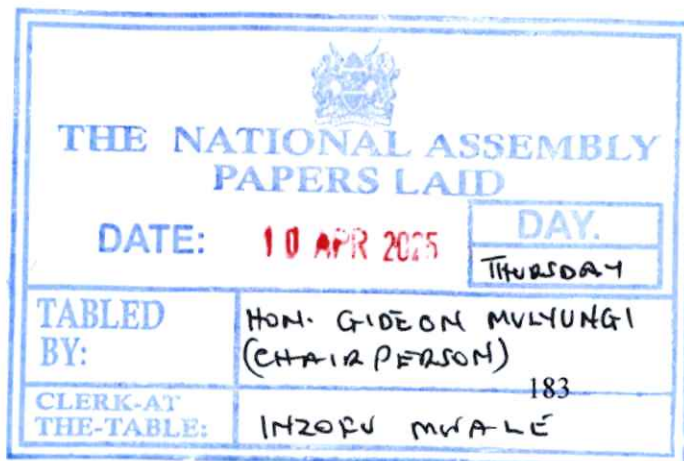 THE NATIONAL ASSEMBLY
PAPERS LAID
DATE: 10 APR 2025
DAY.
THURSDAY
TABLED BY:
HON. GIDEON MULYUNGI
(CHAIRPERSON)
183
CLERK-AT THE-TABLE:
INZOFU MWALE